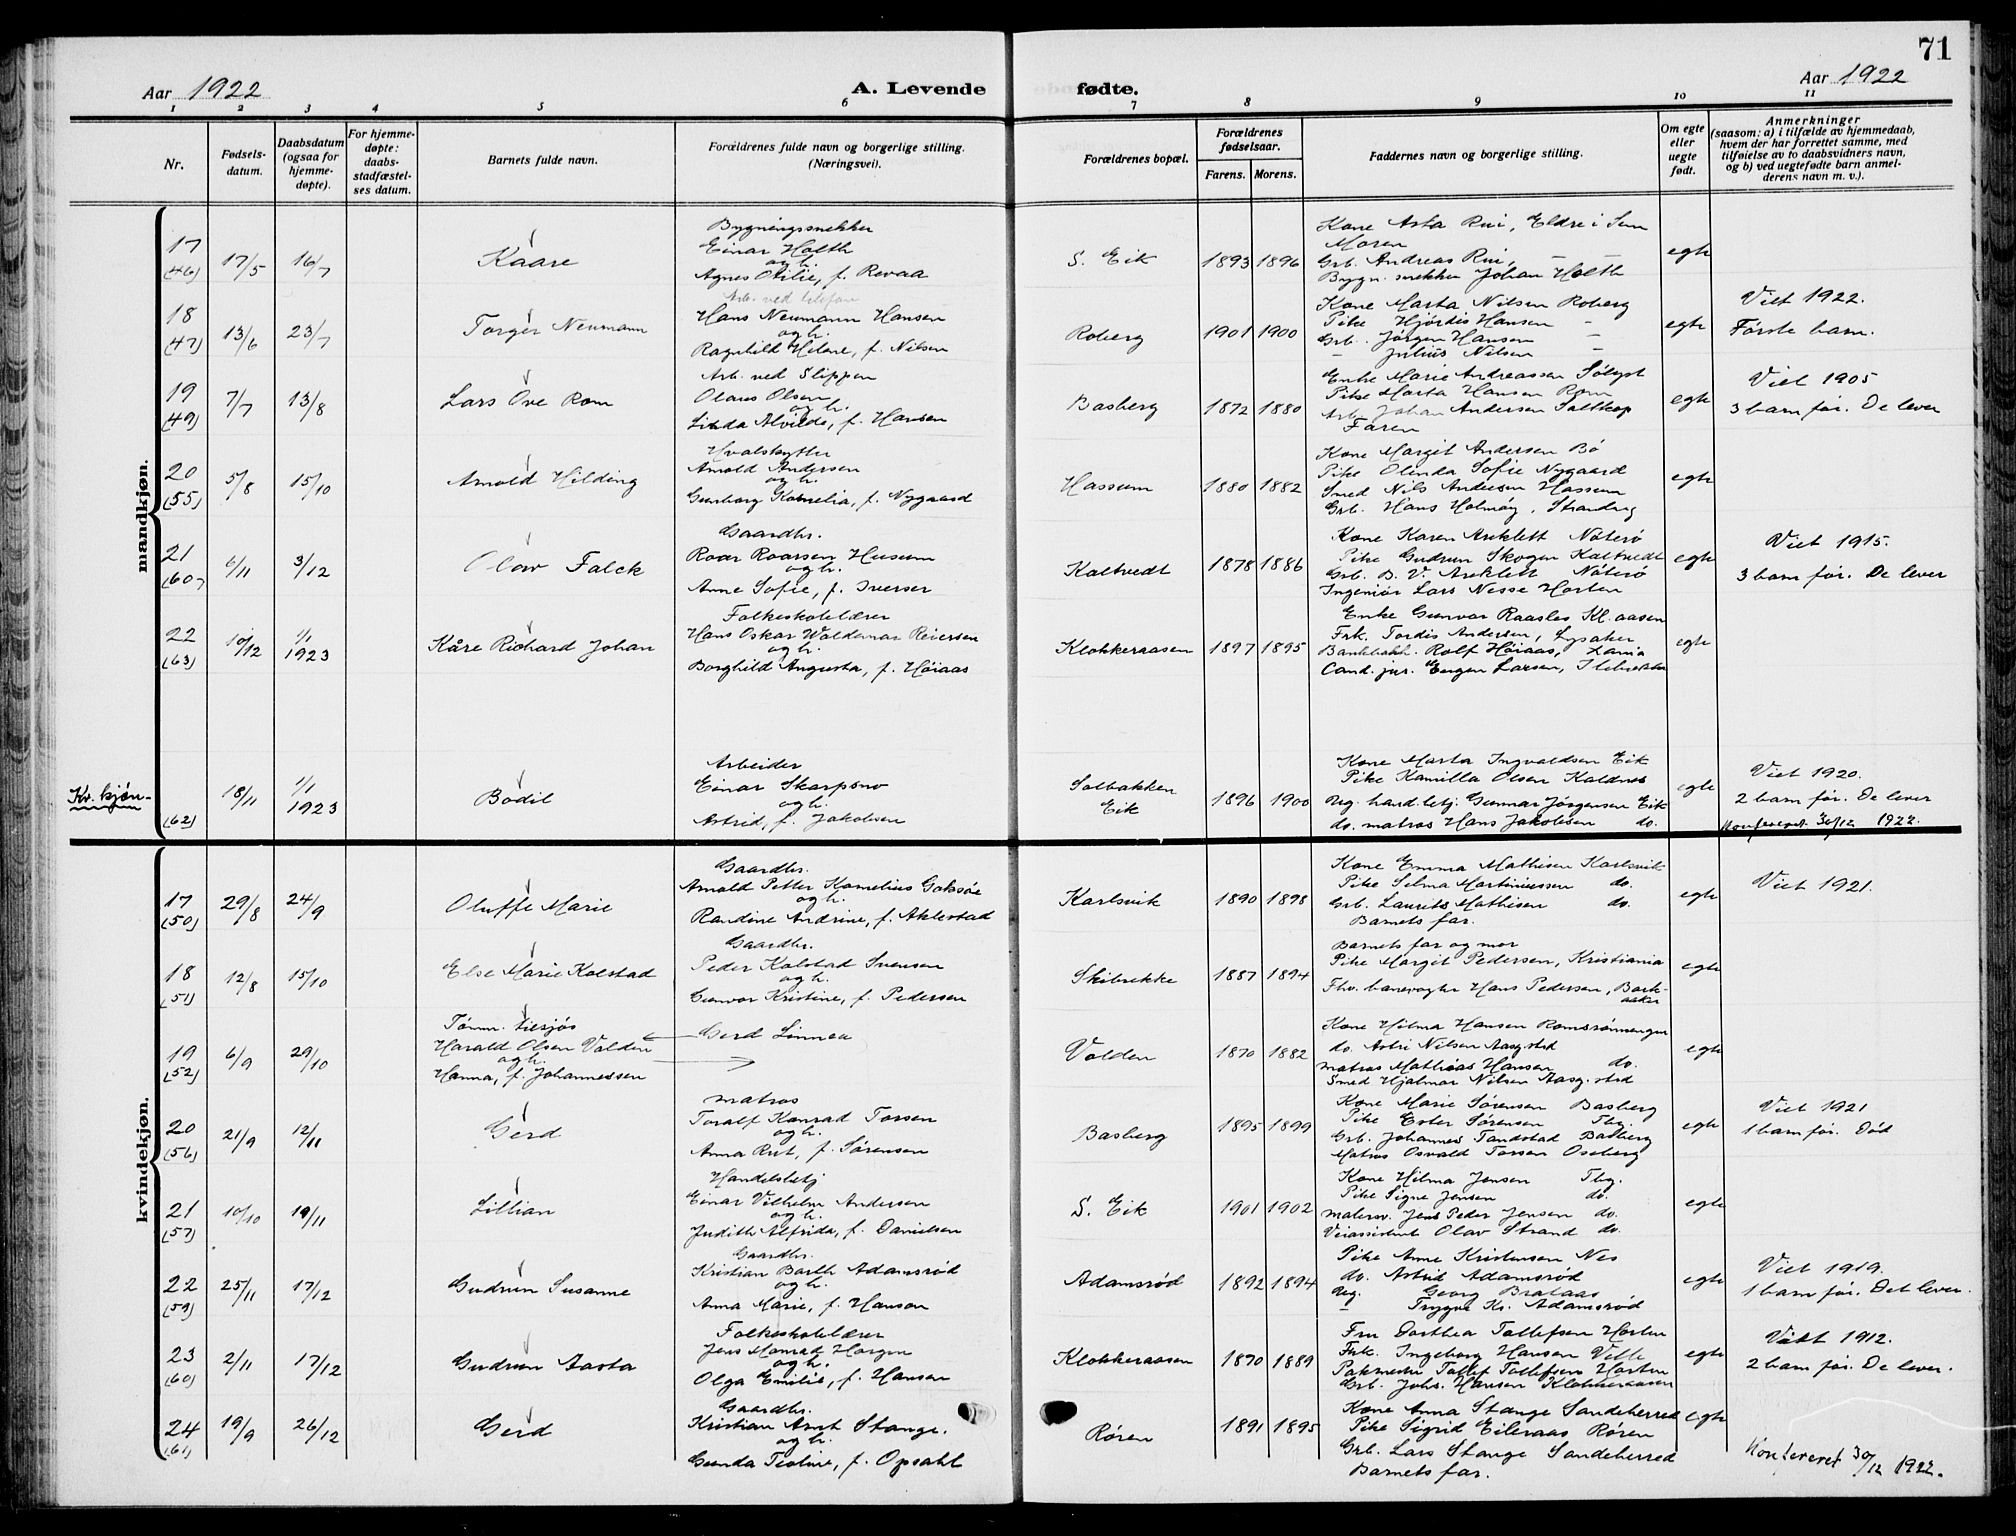 71
Aar 1922 A. Levende fødte. Aar 1922
1 2 3 4 5 6 7 8 9 10 11
Nr.
Fødsels-
datum.
Daabsdatum
(ogsaa for
hjemme-
døpte).
For hjemme-
døpte:
daabs-
stadfæstel-
ses datum.
Barnets fulde navn.
Forældrenes fulde navn og borgerlige stilling.
(Næringsvei).
Forældrenes bopæl.
Forældrenes
fødselsaar.
Farens. Morens.
Faddernes navn og borgerlige stilling.
Om egte
eller
uegte
født.
Anmerkninger
(saasom: a) i tilfælde av hjemmedaab,
hvem der har forrettet samme, med
tilføielse av to daabsvidners navn,
og b) ved uegtefødte barn anmel-
derens navn m. v.).
mandkjøn.
17
(46)
17/5
16/7
Kaare
Bygningssnekker
Einar Holth
og h.
Agnes Otilie, f. Revaa
S. Eik
1893 1896
Kone Asta Rui, Eldre i Sem
Moren
Grb. Andreas Rui, — —
Bygn. snekker Johan Holth
egte
18
(47)
13/6
23/7
Torger Neumann
Arb. ved telefon
Hans Neumann Hansen
og h.
Ragnhild Helene, f. Nilsen
Roberg
1901 1900
Kone Marta Nilsen Roberg
Pike Hjørdis Hansen —
Grb. Jørgen Hansen —
— Julius Nilsen —
egte
Viet 1922.
Første barn.
19
(49)
7/7
13/8
Lars Ove Rom
Arb. ved Slippen
Olaus Olsen
og h.
Linda Alvilde, f. Hansen
Basberg
1872 1880
Enke Marie Andreassen Solyst
Pike Marta Hansen Rom
Arb. Johan Andersen Saltkop
Faren
egte
Viet 1905
3 barn før. De lever
20
(55)
5/8
15/10
Arnold Hilding
Hvalskytter
Arnold Andersen
og h.
Gunborg Kornelia, f. Nygaard
Hassum
1880 1882
Kone Margit Andersen Bø
Pike Olinda Sofie Nygaard
Smed Nils Andersen Hassum
Grb. Hans Holmøy, Strandvg
egte
21
(60)
6/11
3/12
Olav Falck
Gaardbr.
Roar Roarsen Husum
og h.
Anne Sofie, f. Iversen
Kaltvedt
1878 1886
Kone Karen Areklett Nøterø
Pike Gudrun Skogen Kaltvedt
Grb. B. V. Areklett Nøterø
Ingeniør Lars Nesse Horten
egte
Viet 1915.
3 barn før. De lever
22
(63)
10/12
1/1
1923
Kåre Richard Johan
Folkeskolelærer
Hans Oskar Waldemar Reiersen
og h.
Borghild Augusta, f. Høiaas
Klokkeraasen
1897 1895
Enke Gunvor Raasles Kl.aasen
Frk. Tordis Andersen, Lysaker
Rolf Høiaas,
Cand. jur. Eugen Larsen,
egte
Kv. kjøn-
(62)
18/11
1/1
1923
Bodil
Arbeider
Einar Skarpsno
og h.
Astrid, f. Jakobsen
Solbakken
Eik
1896 1900
Kone Marta Ingvaldsen Eik
Pike Kamilla Olsen Kaldnes
Ug. handl.betj. Gunnar Jørgensen Eik
do. matros Hans Jakobsen do.
egte
Viet 1920.
2 barn før. De lever
Konfereret 30/12 1922.
kvindekjøn.
17
(50)
29/8
24/9
Oluffe Marie
Gaardbr.
Arnold Petter Kornelius Goksøe
og h.
Randine Andrine, f. Aklestad
Karlsvik
1890 1898
Kone Emma Mathisen Karlsvik
Pike Selma Martiniussen do.
Grb. Laurits Mathisen do.
Barnets far.
egte
Viet 1921.
18
(51)
12/8
15/10
Else Marie Kolstad
Gaardbr.
Peder Kolstad Svensen
og h.
Gunvor Kristine, f. Pedersen
Skibrekke
1887 1894
Barnets far og mor
Pike Margit Pedersen, Kristiania
Fhv. banevogter Hans Pedersen, Bark-
aaker
egte
19
(52)
6/9
29/10
Tømm. tilsjøs
Harald Olsen Volden
og h.
Hanna, f. Johannessen
Gerd Linnea
Volden
1870 1882
Kone Hilma Hansen
do. Astri Nilsen Aasg.strd
matros Mathias Hansen do.
Smed Hjalmar Nilsen Aasg.strd
egte
20
(56)
21/9
12/11
Gerd
matros
Toralf Konrad Torsen
og h.
Anna Rut, f. Sørensen
Basberg
1895 1899
Kone Marie Sørensen Basberg
Pike Ester Sørensen Tbg.
Grb. Johannes Tandstad Basberg
Matros Osvald Torsen Oseberg
egte
Viet 1921
1 barn før. Død
21
(57)
10/10
19/11
Lillian
Handelsbetj
Einar Vilhelm Andersen
og h.
Judith Alfrida, f. Danielsen
S. Eik
1901 1902
Kone Hilma Jensen Tbg.
Pike Signe Jensen do.
malersv. Jens Peder Jensen do.
Veiassistent Olav Strand do.
egte
22
(59)
25/11
17/12
Gudrun Susanne
Gaardbr.
Kristian Barth Adamsrød
og h.
Anna Marie, f. Hanson
Adamsrød
1892 1894
Pike Anne Kristensen Nes
do. Astrid Adamsrød
Ug. Georg Brataas
— Trygve Kr. Adamsrød
egte
Viet 1919.
1 barn før. Det lever.
23
(60)
2/11
17/12
Gudrun Aasta
Folkeskolelærer
Jens Monrad Horgen
og h.
Olga Emilie, f. Hansen
Klokkeraasen
1870 1889
Fru Dorthea Tollefsen Horten
Frk. Ingeborg Hansen Velle
Pakmester Tollef Tollefsen Horten
Grb. Johs. Hansen Klokkeraasen
egte
Viet 1912.
2 barn før. De lever.
24
(61)
19/9
26/12
Gerd
Gaardbr.
Kristian Arnt Stange.
og h.
Gunda Teoline, f. Opsahl
Røren
1891 1895
Kone Anna Stange Sandeherred
Pike Sigrid Eileraas Røren
Grb. Lars Stange Sandeherred
Barnets far.
egte
Konfereret 30/12 1922.